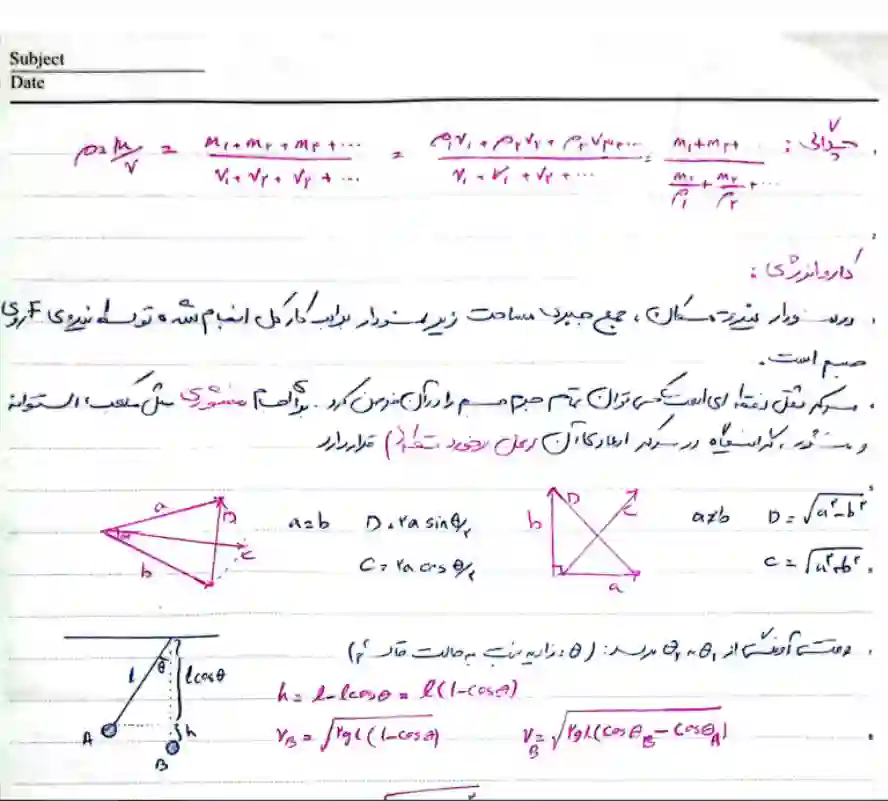 Subject
Date
چگالی: ρ = m/V = (m₁ + m₂ + m₃ + ...)/(V₁ + V₂ + V₃ + ...) = (ρ₁V₁ + ρ₂V₂ + ρ₃V₃ + ...)/(V₁ + V₂ + V₃ + ...) = (m₁ + m₂ + ...)/(m₁/ρ₁ + m₂/ρ₂ + ...)
کار و انرژی:
در نمودار نیرو مکان، جمع جبری مساحت زیر نمودار برابر کار کل انجام شده توسط نیروی F روی
جسم است.
مرکز ثقل نقطه ای است که می توان تمام جرم جسم را در آن فرض کرد. برای اجسام منشوری مثل مکعب، استوانه
و منشور، گرانیگاه در مرکز آن (محل برخورد قطرها) قرار دارد
a b D C
a=b D = ۲a sin θ/۲
C = ۲a cos θ/۲
b D C a
a≠b D = √(a² - b²)
C = √(a² + b²)
وقتی آونگ از θ₁ به θ₂ برسد: (θ: زاویه نسبت به حالت قائم)
l θ l cosθ h A B
h = l - l cosθ = l(1 - cosθ)
V_B = √(۲gl(1 - cosθ)) V_B = √(۲gl(cosθ_B - cosθ_A))